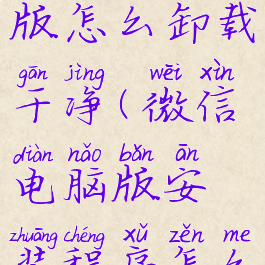 版怎么卸载
gān jìng wēi xìn
干净(微信
diàn nǎo bǎn ān
电脑版安
zhuāng chéng xǔ zěn me
装程序怎么